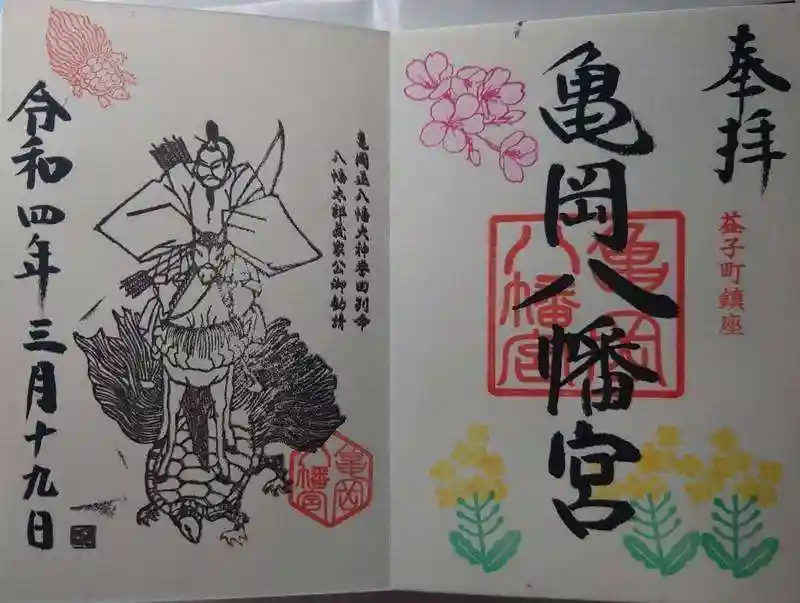 奉拝
益子町鎮座
亀岡八幡宮
亀岡
八幡宮
亀岡追八幡大神誉田別命
八幡太郎義家公御勧請
亀岡
八幡宮
令和四年三月十九日